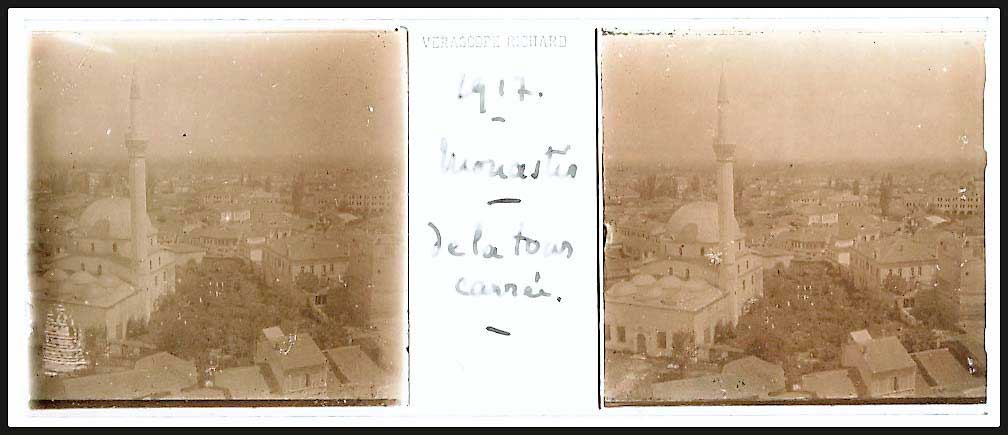 VERASCOPE RICHARD
1917.
Monastir
de la tour
carrée.